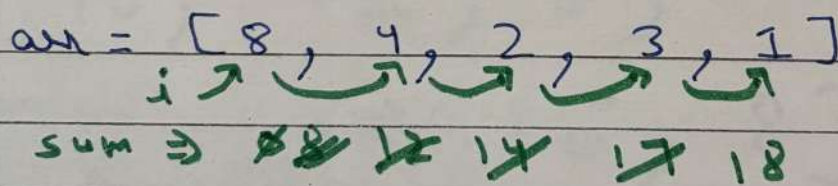 arr = [ 8 , 4 , 2 , 3 , 1 ]
i
sum ⇒ 0 8 12 14 17 18